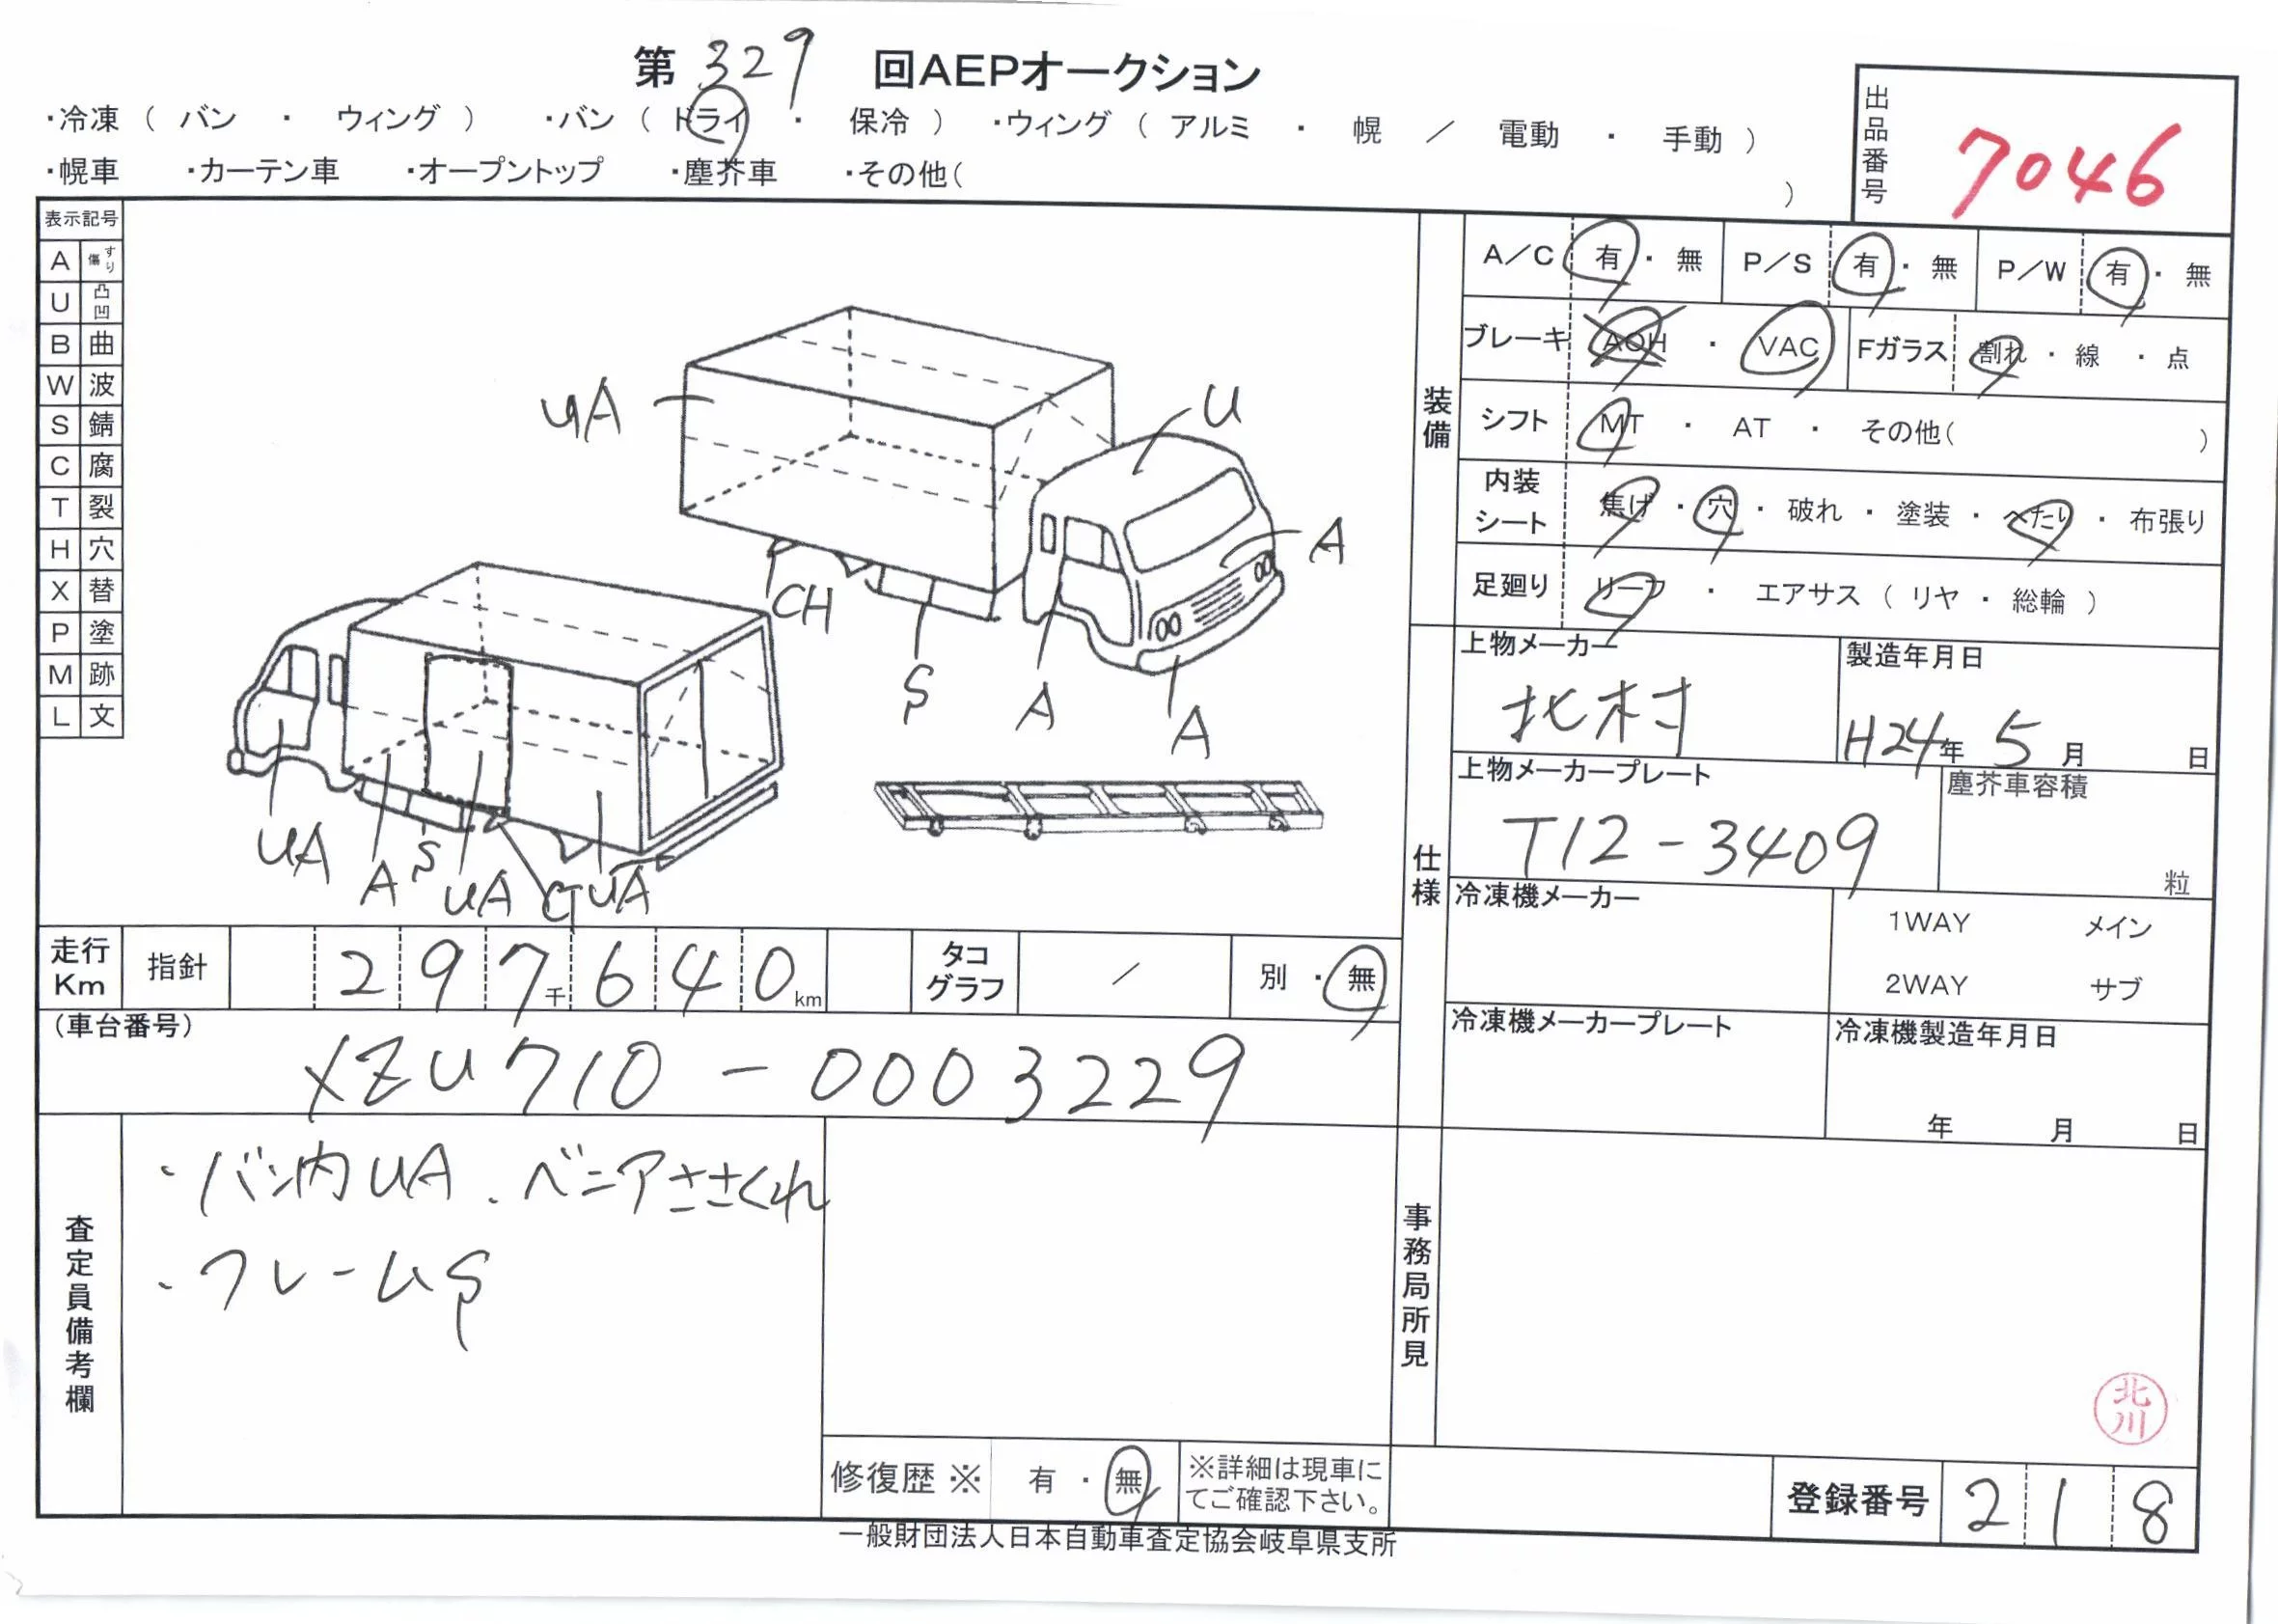 第 329 回AEPオークション
・冷凍（ バン ・ ウィング ） ・バン（ ドライ ・ 保冷 ） ・ウィング（ アルミ ・ 幌 ／ 電動 ・ 手動 ）
・幌車 ・カーテン車 ・オープントップ ・塵芥車 ・その他（ ）
出品番号 7046
表示記号
A すり傷
U 凸凹
B 曲
W 波
S 錆
C 腐
T 裂
H 穴
X 替
P 塗
M 跡
L 文
UA
U
A
CH
S
A
A
UA
A
S
UA
CT
UA
装備
A／C 有・無 P／S 有・無 P／W 有・無
ブレーキ AOH ・ VAC Fガラス 割れ ・ 線 ・ 点
シフト MT ・ AT ・ その他（ ）
内装シート 焦げ ・ 穴 ・ 破れ ・ 塗装 ・ へたり ・ 布張り
足廻り リーフ ・ エアサス（ リヤ ・ 総輪 ）
仕様
上物メーカー 北村
製造年月日 H24年 5月 日
上物メーカープレート T12-3409
塵芥車容積 粒
冷凍機メーカー
1WAY メイン
2WAY サブ
冷凍機メーカープレート
冷凍機製造年月日
年 月 日
走行Km 指針 297千640km タコグラフ ／ 別・無
（車台番号）
XZU710-0003229
査定員備考欄
・バン内UA、ベニアささくれ
・フレームS
事務局所見
北川
修復歴※ 有・無 ※詳細は現車にてご確認下さい。
登録番号 218
一般財団法人日本自動車査定協会岐阜県支所